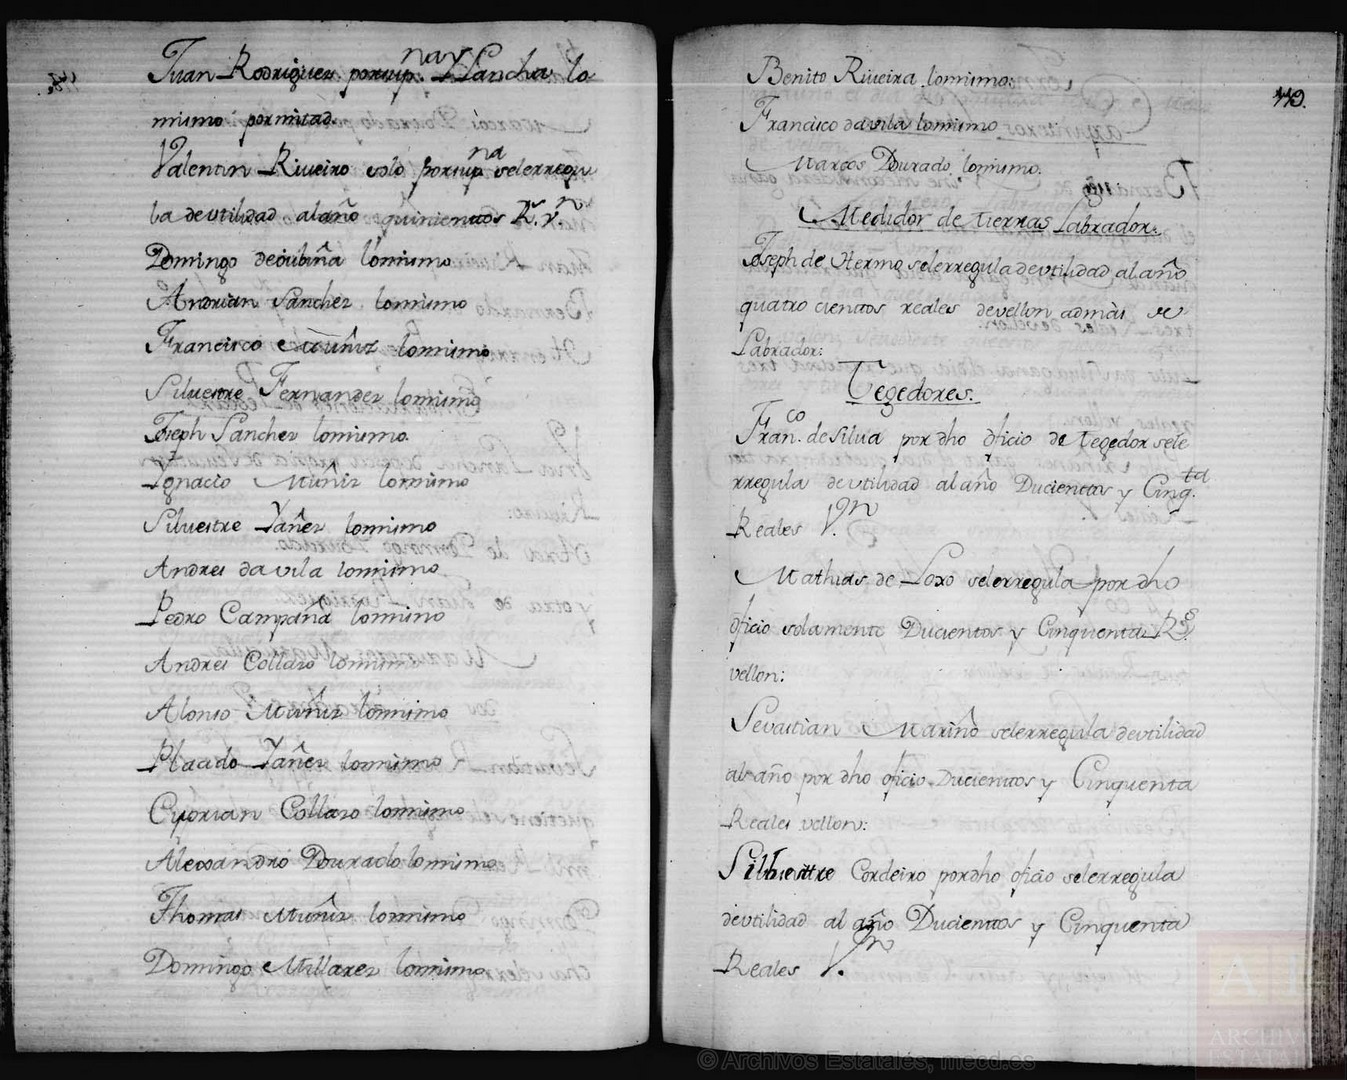 Juan Rodriguez porsup.nav Llancha lo
mismo pormitad
Valentin Riveiro solo porsup na selerregu
la deutilidad alaño quinientos Rs. vn
Domingo deoubiña lomismo
Andrian Sanchez lomismo
Francisco Muñiz lomismo
Silvestre Fernandez lomismo
Joseph Sanchez lomismo.
Ignacio Muñiz lomismo
Silvestre Yañez lomismo
Andres davila lomismo
Pedro Campaña lomismo
Andres Collazo lomismo
Alonso Muñiz lomismo
Placido Yañez lomismo
Ciprian Collazo lomismo
Alexandro Dourado lomismo
Thomas Muñiz lomismo
Domingo Millarez lomismo
119.
Benito Riveira lomismo:
Francisco davila lomismo
Marcos Dourado lomismo.
Medidor de tierras Labrador:
Joseph de Hermo selerregula deutilidad alaño
quatro cientos reales devellon admás de
Labrador:
Tegedores.
Franco. desilva por dho oficio de tegedor sele
rregula deutilidad alaño Ducientos y Cinqta.
Reales Vn.
Mathias de Loxo selerregula por dho
oficio solamente Ducientos y Cinquenta Rs
vellon:
Sevastian Mariño selerregula deutilidad
alaño por dho oficio Ducientos y Cinquenta
Reales vellon:
Silbesttre Cordeiro pordho oficio selerregula
deutilidad al año Ducientos y Cinquenta
Reales Vn.
© Archivos Estatales, mecd.es
ARCHIV
ESTATA